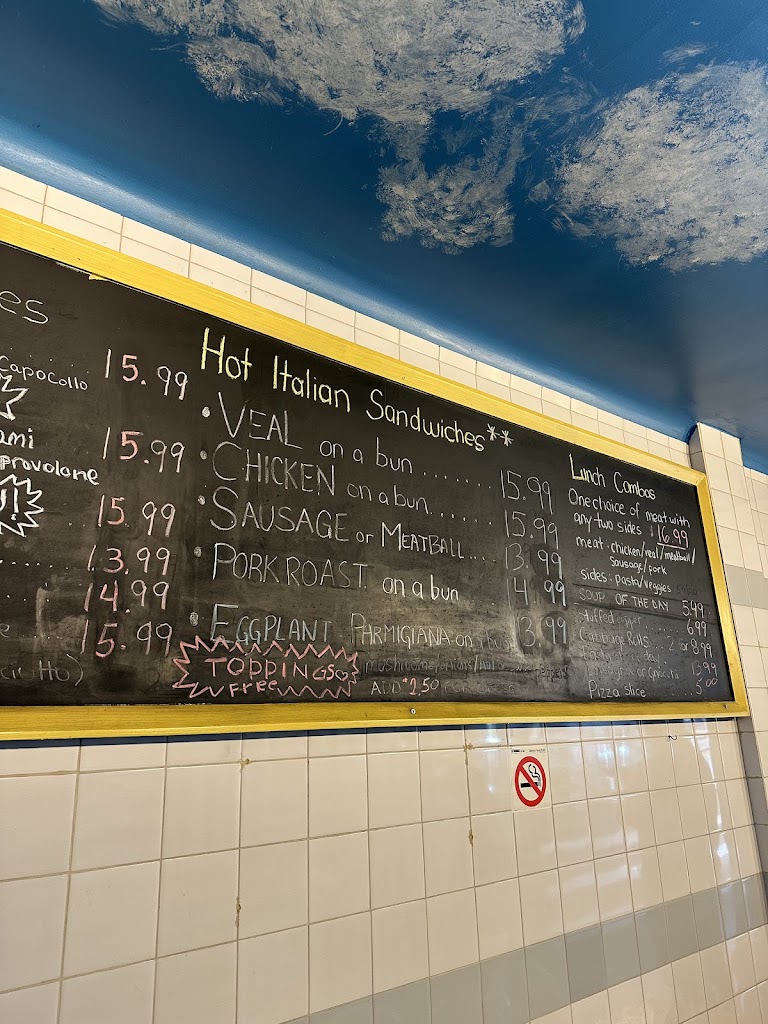 es
Capocollo 15.99
ami
provolone 15.99
15.99
13.99
14.99
15.99
Hot Italian Sandwiches**
• VEAL on a bun ....... 15.99
• CHICKEN on a bun...... 15.99
• SAUSAGE or MEATBALL.... 13.99
• PORK ROAST on a bun 4.99
• EGGPLANT PARMIGIANA on 13.99
TOPPINGS
Free
ADD $2.50
Lunch Combos
One choice of meat with
any two sides $16.99
meat - chicken/veal/meatball/
Sausage/pork
sides - pasta/veggies
SOUP OF THE DAY 5.49
Stuffed 6.99
Cabbage Rolls 2 for 8.99
13.99
Pizza slice ....5.00